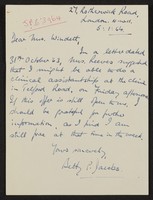 27, Rotherwick Road,
London N.W.11
5.1.64
Dear Mrs. Windett,
In a letter dated
31st October 63, Mrs. Reeves suggested
that I might be able to do a
clinical assistantship at the clinic
in Telford Road, on Friday afternoons.
If this offer is still open to me, I
should be grateful for further
information as I find I am
still free at that time in the week.
Yours sincerely,
Betty E.